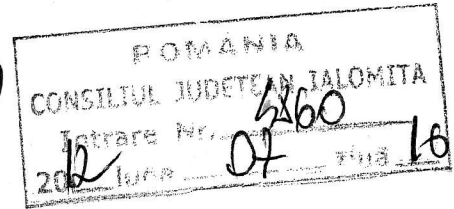 ROMÂNIA
CONSILIUL JUDETEAN IALOMITA
Intrare Nr. 5860
2012 luna 07 ziua 16